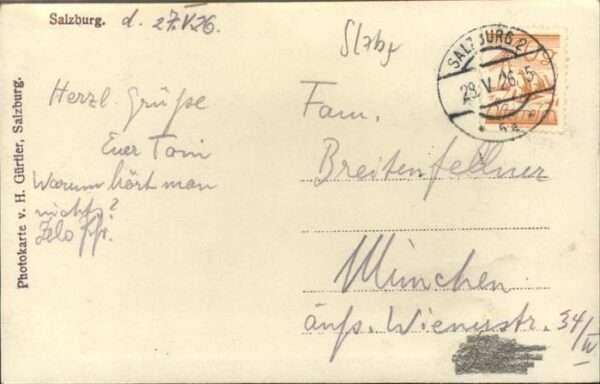 Salzburg. d. 27.V.26.
Slzbg
SALZBURG 2
28.V.26.15
Herzl. Grüße
Euer Toni
Warum hört man
nichts?
Fam.
Breitenfellner
München
äuß. Wienerstr. 34/IV
Photokarte v. H. Gürtler, Salzburg.